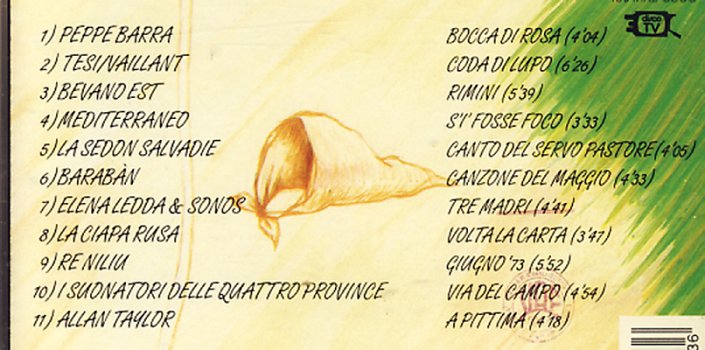 disco
TV
1) PEPPE BARRA BOCCA DI ROSA (4'04)
2) TESI/VAILLANT CODA DI LUPO (6'26)
3) BEVANO EST RIMINI (5'39)
4) MEDITERRANEO S'I' FOSSE FOCO (3'33)
5) LA SEDON SALVADIE CANTO DEL SERVO PASTORE (4'05)
6) BARABÀN CANZONE DEL MAGGIO (4'33)
7) ELENA LEDDA & SONOS TRE MADRI (4'41)
8) LA CIAPA RUSA VOLTA LA CARTA (3'47)
9) RE NILIU GIUGNO '73 (5'52)
10) I SUONATORI DELLE QUATTRO PROVINCE VIA DEL CAMPO (4'54)
11) ALLAN TAYLOR A PITTIMA (4'18)
36